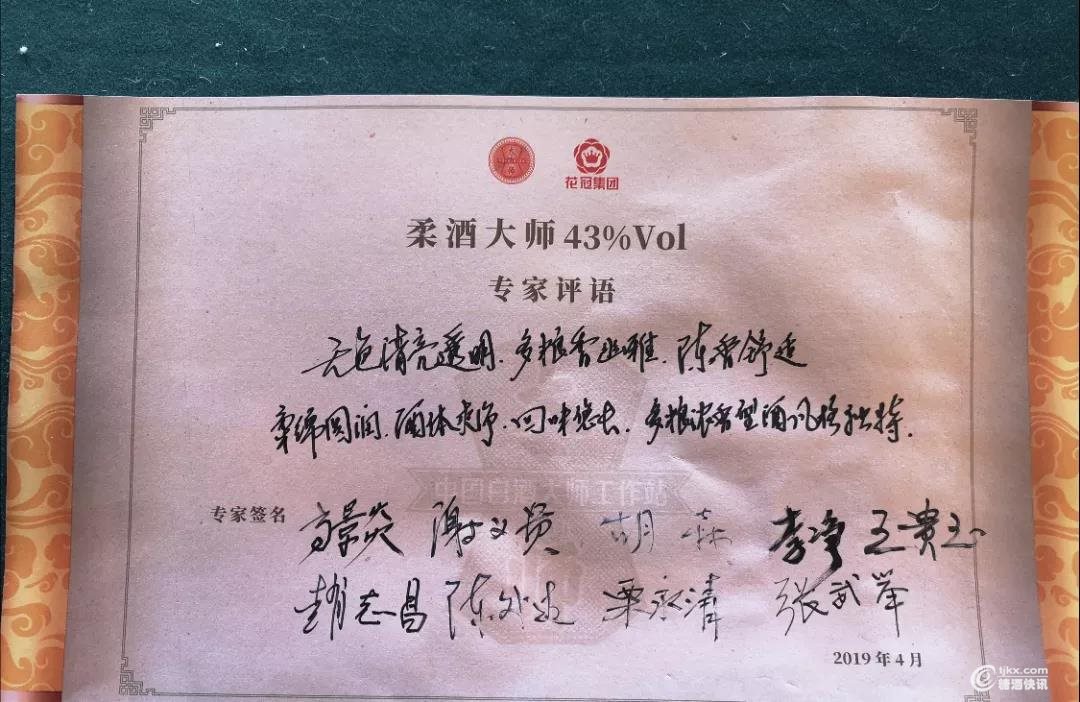 花冠集团
柔酒大师 43%Vol
专家评语
无色清亮透明、多粮香幽雅、陈香舒适
柔绵圆润、酒体爽净、回味悠长、多粮浓香型酒风格独特。
中国白酒大师工作站
专家签名 高景炎 胡森 李净 王贵玉
赵志昌 栗永清 张武举
2019年4月
tjkx.com
糖酒快讯